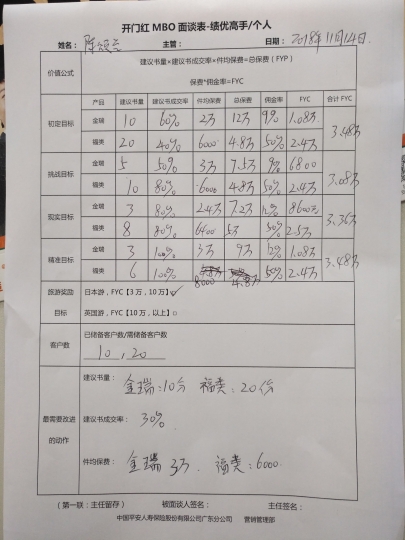 开门红 MBO 面谈表-绩优高手/个人
姓名： 陈 主管： 日期： 2018年11月14日.
价值公式 建议书量*建议书成交率*件均保费=总保费（FYP）
保费*佣金率=FYC
产品 建议书量 建议书成交率 件均保费 总保费 佣金率 FYC 合计 FYC
初定目标 金瑞 10 60% 2万 12万 9% 1.08万 3.48万
福类 20 40% 6000 4.8万 50% 2.4万
挑战目标 金瑞 5 50% 3万 7.5万 9% 6800 3.08万
福类 10 80% 6000 4.8万 50% 2.4万
现实目标 金瑞 3 80% 2.4万 7.2万 12% 8600元 3.36万
福类 8 80% 6400 5万 50% 2.5万
精准目标 金瑞 3 100% 3万 9万 12% 1.08万 3.48万
福类 6 100% 8000 4.8万 50% 2.4万
旅游奖励 日本游，FYC【3 万，10 万】√
目标 英国游，FYC【10 万，以上】○
客户数 已储备客户数/需储备客户数
10 , 20
最需要改进的动作 建议书量： 金瑞:10份 福类:20份
建议书成交率： 30%
件均保费： 金瑞 3万. 福类:6000.
（第一联：主任留存） 被面谈人签名： 主任签名：
中国平安人寿保险股份有限公司广东分公司 营销管理部